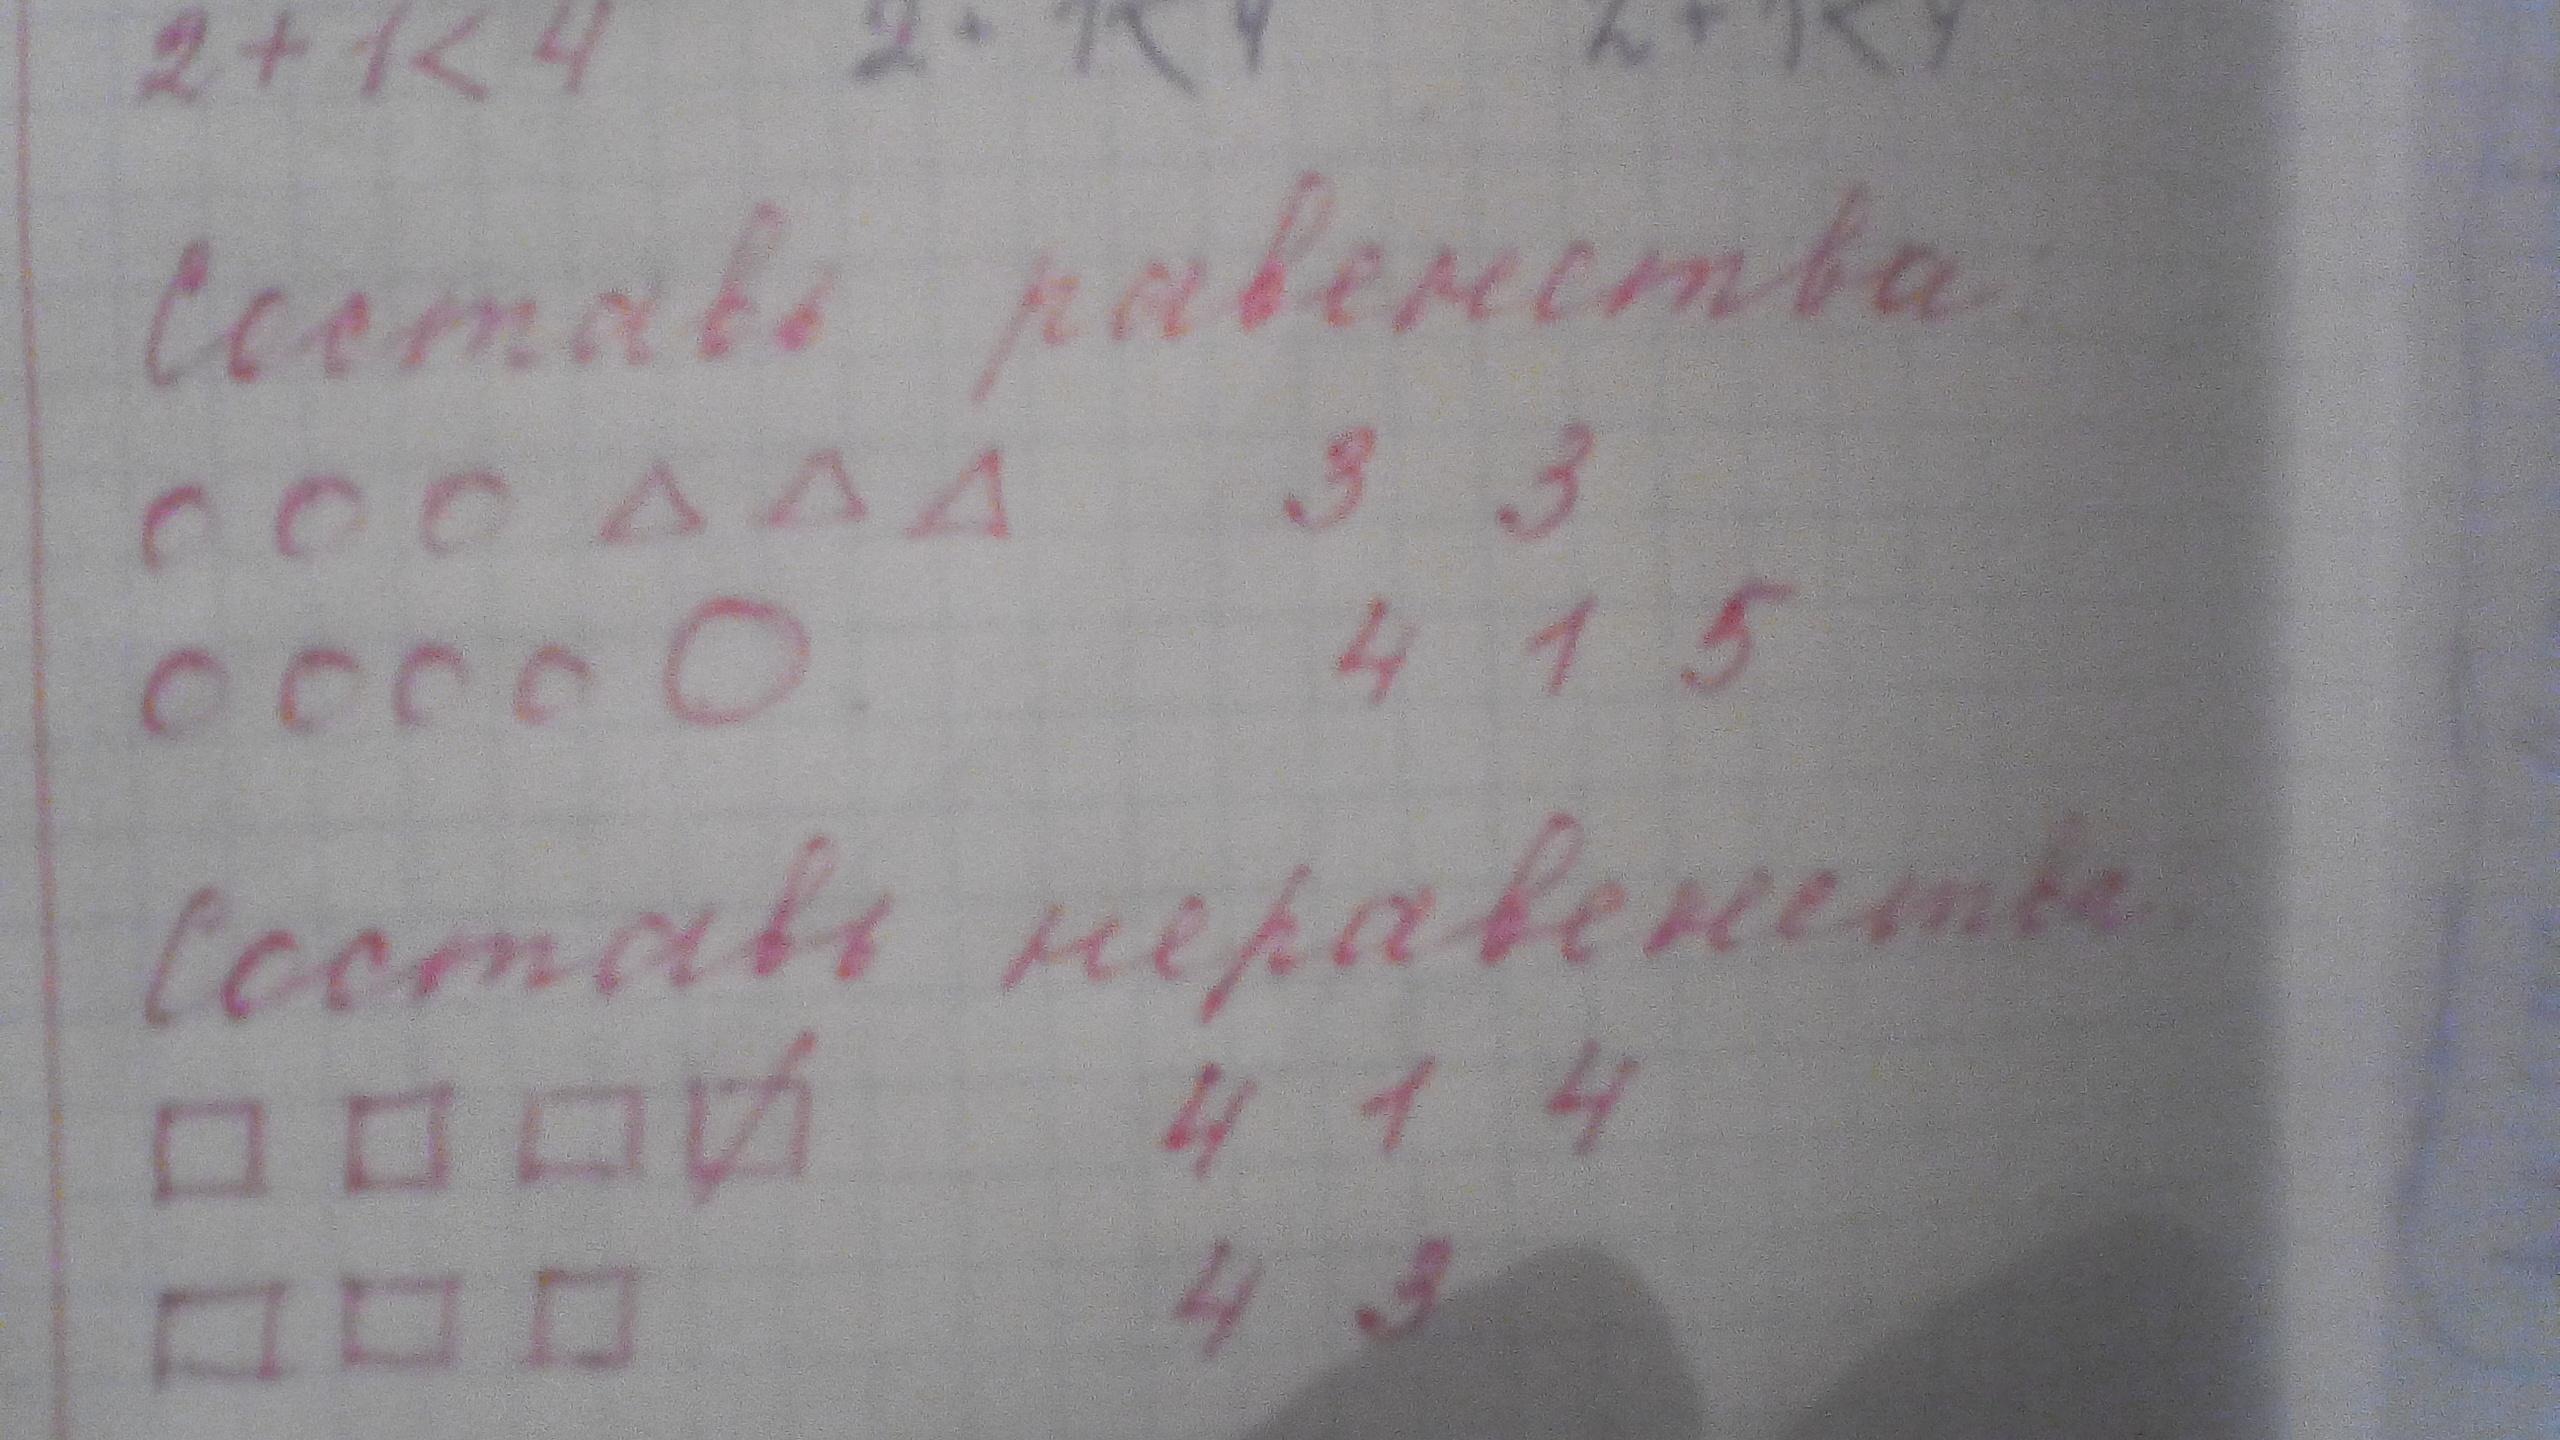 2 + 1 < 4 2 + 1 < 4 2 + 1 < 4
Составь равенства
3 3
4 1 5
Составь неравенства
4 1 4
4 3